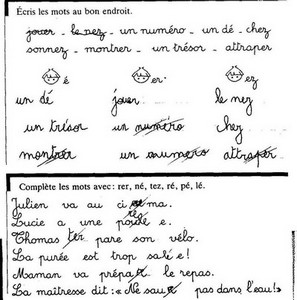 Écris les mots au bon endroit.
jouer - le nez - un numéro - un dé - chez
sonnez - montrer - un trésor - attraper
é er ez
un dé jouer le nez
un trésor un numéro chez
montrer un numero attraper
Complète les mots avec : rer, né, tez, ré, pé, lé.
Julien va au ci ma.
Lucie a une pou e.
Thomas pare son vélo.
La purée est trop salée!
Maman va prépa le repas.
La maîtresse dit : « Ne sau pas dans l'eau! »